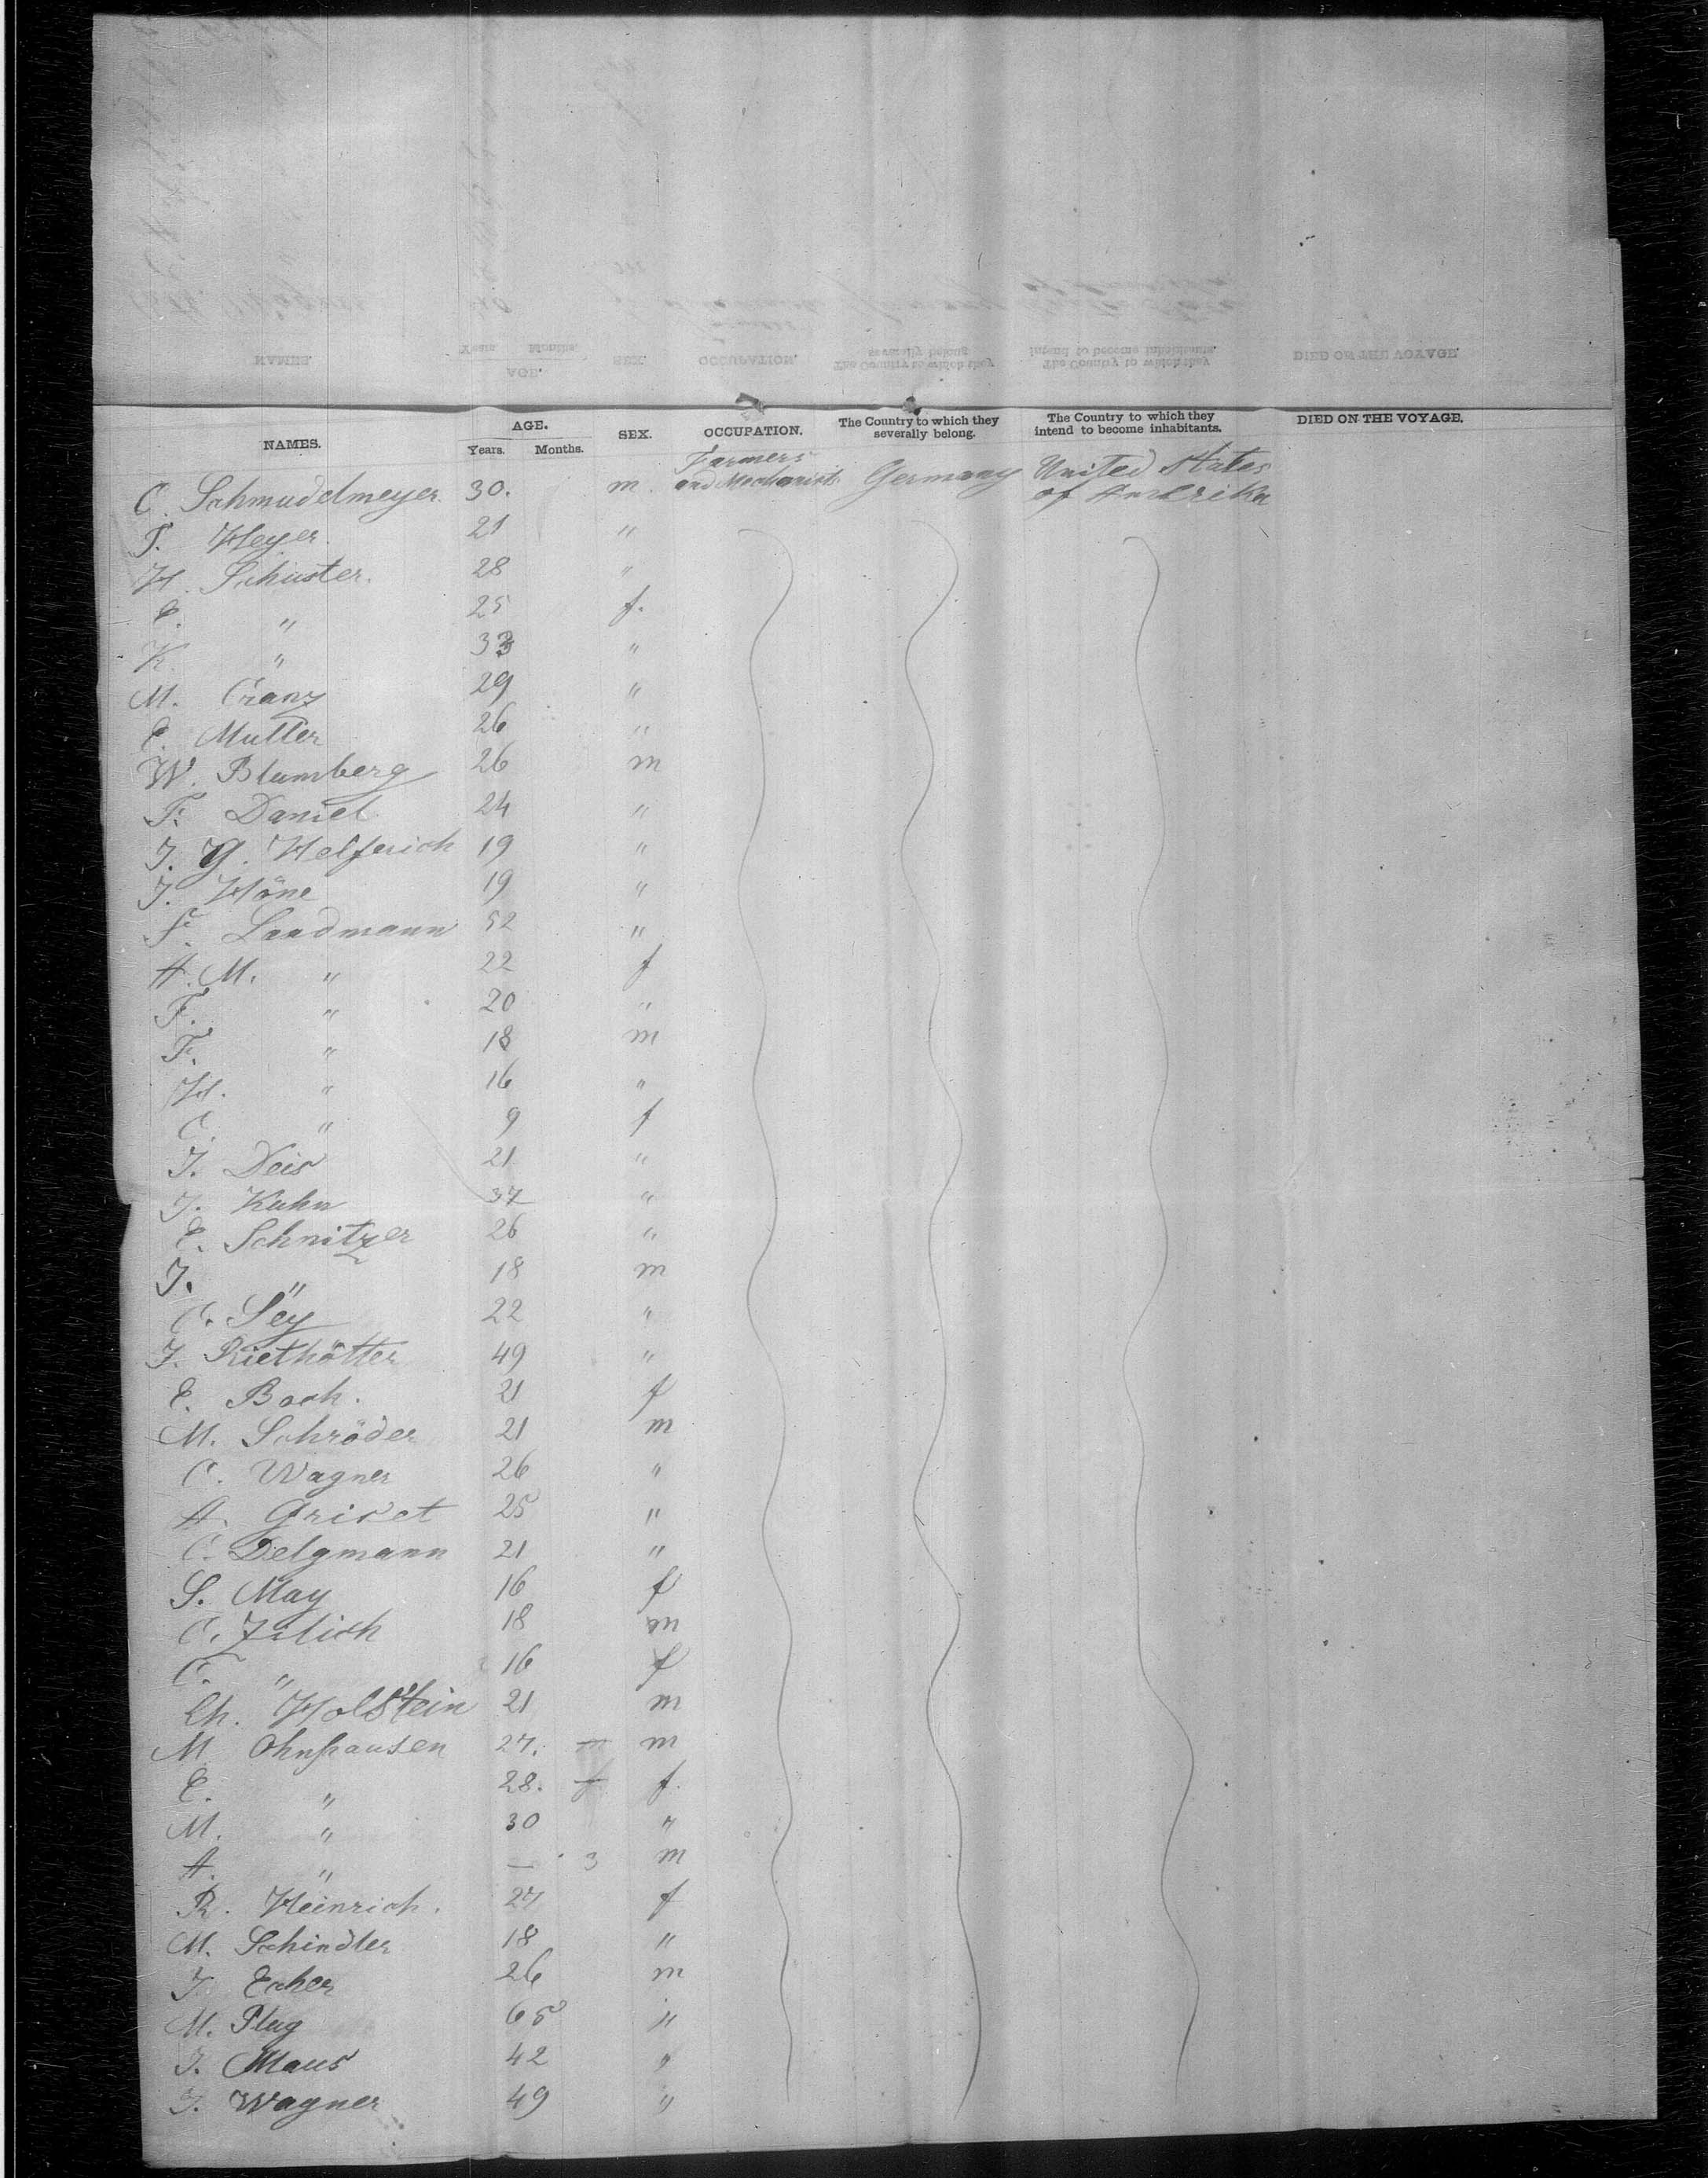 NAMES. AGE. Years. Months. SEX. OCCUPATION. The Country to which they severally belong. The Country to which they intend to become inhabitants. DIED ON THE VOYAGE.
C. Schmudelmeyer 30. m. Farmers and Mechanists Germany United States of Amerika
T. Heyer. 21 "
H. Schuster. 28 "
E. " 25 f.
K. " 33 "
M. Cranz 29 "
E. Muller 26 "
W. Blumberg 26 m
F. Daniel 24 "
J. G. Helferich 19 "
J. Höne 19 "
F. Landmann 52 "
A. M. " 22 f
F. " 20 "
F. " 18 m
H. " 16 "
C. " 9 f
J. Deis 21 "
J. Kuhn 37 "
E. Schnitzer 26 "
J. " 18 m
C. Ley 22 "
J. Riethötter 49 "
E. Bock. 21 f
M. Schröder 21 m
C. Wagner 26 "
A. Griset 25 "
C. Delgmann 21 "
S. May 16 f
C. 18 m
C. " 16 f
Ch. Holstein 21 m
M. Ohnhausen 27. m
E. " 28. f.
M. " 30 "
A. " — 3 m
R. Heinrich. 27 f
M. Schindler 18 "
J. Echer 26 m
M. Plug 65 "
J. Maus 42 "
J. Wagner 49 "